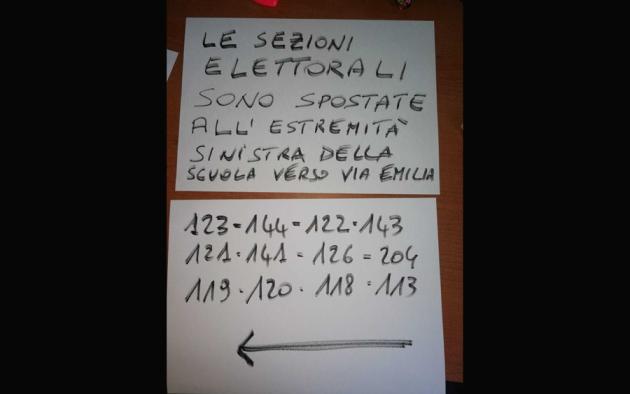 LE SEZIONI
ELETTORALI
SONO SPOSTATE
ALL' ESTREMITÀ
SINISTRA DELLA
SCUOLA VERSO VIA EMILIA
123 - 144 - 122 - 143
121 - 141 - 126 = 204
119 - 120 - 118 - 113